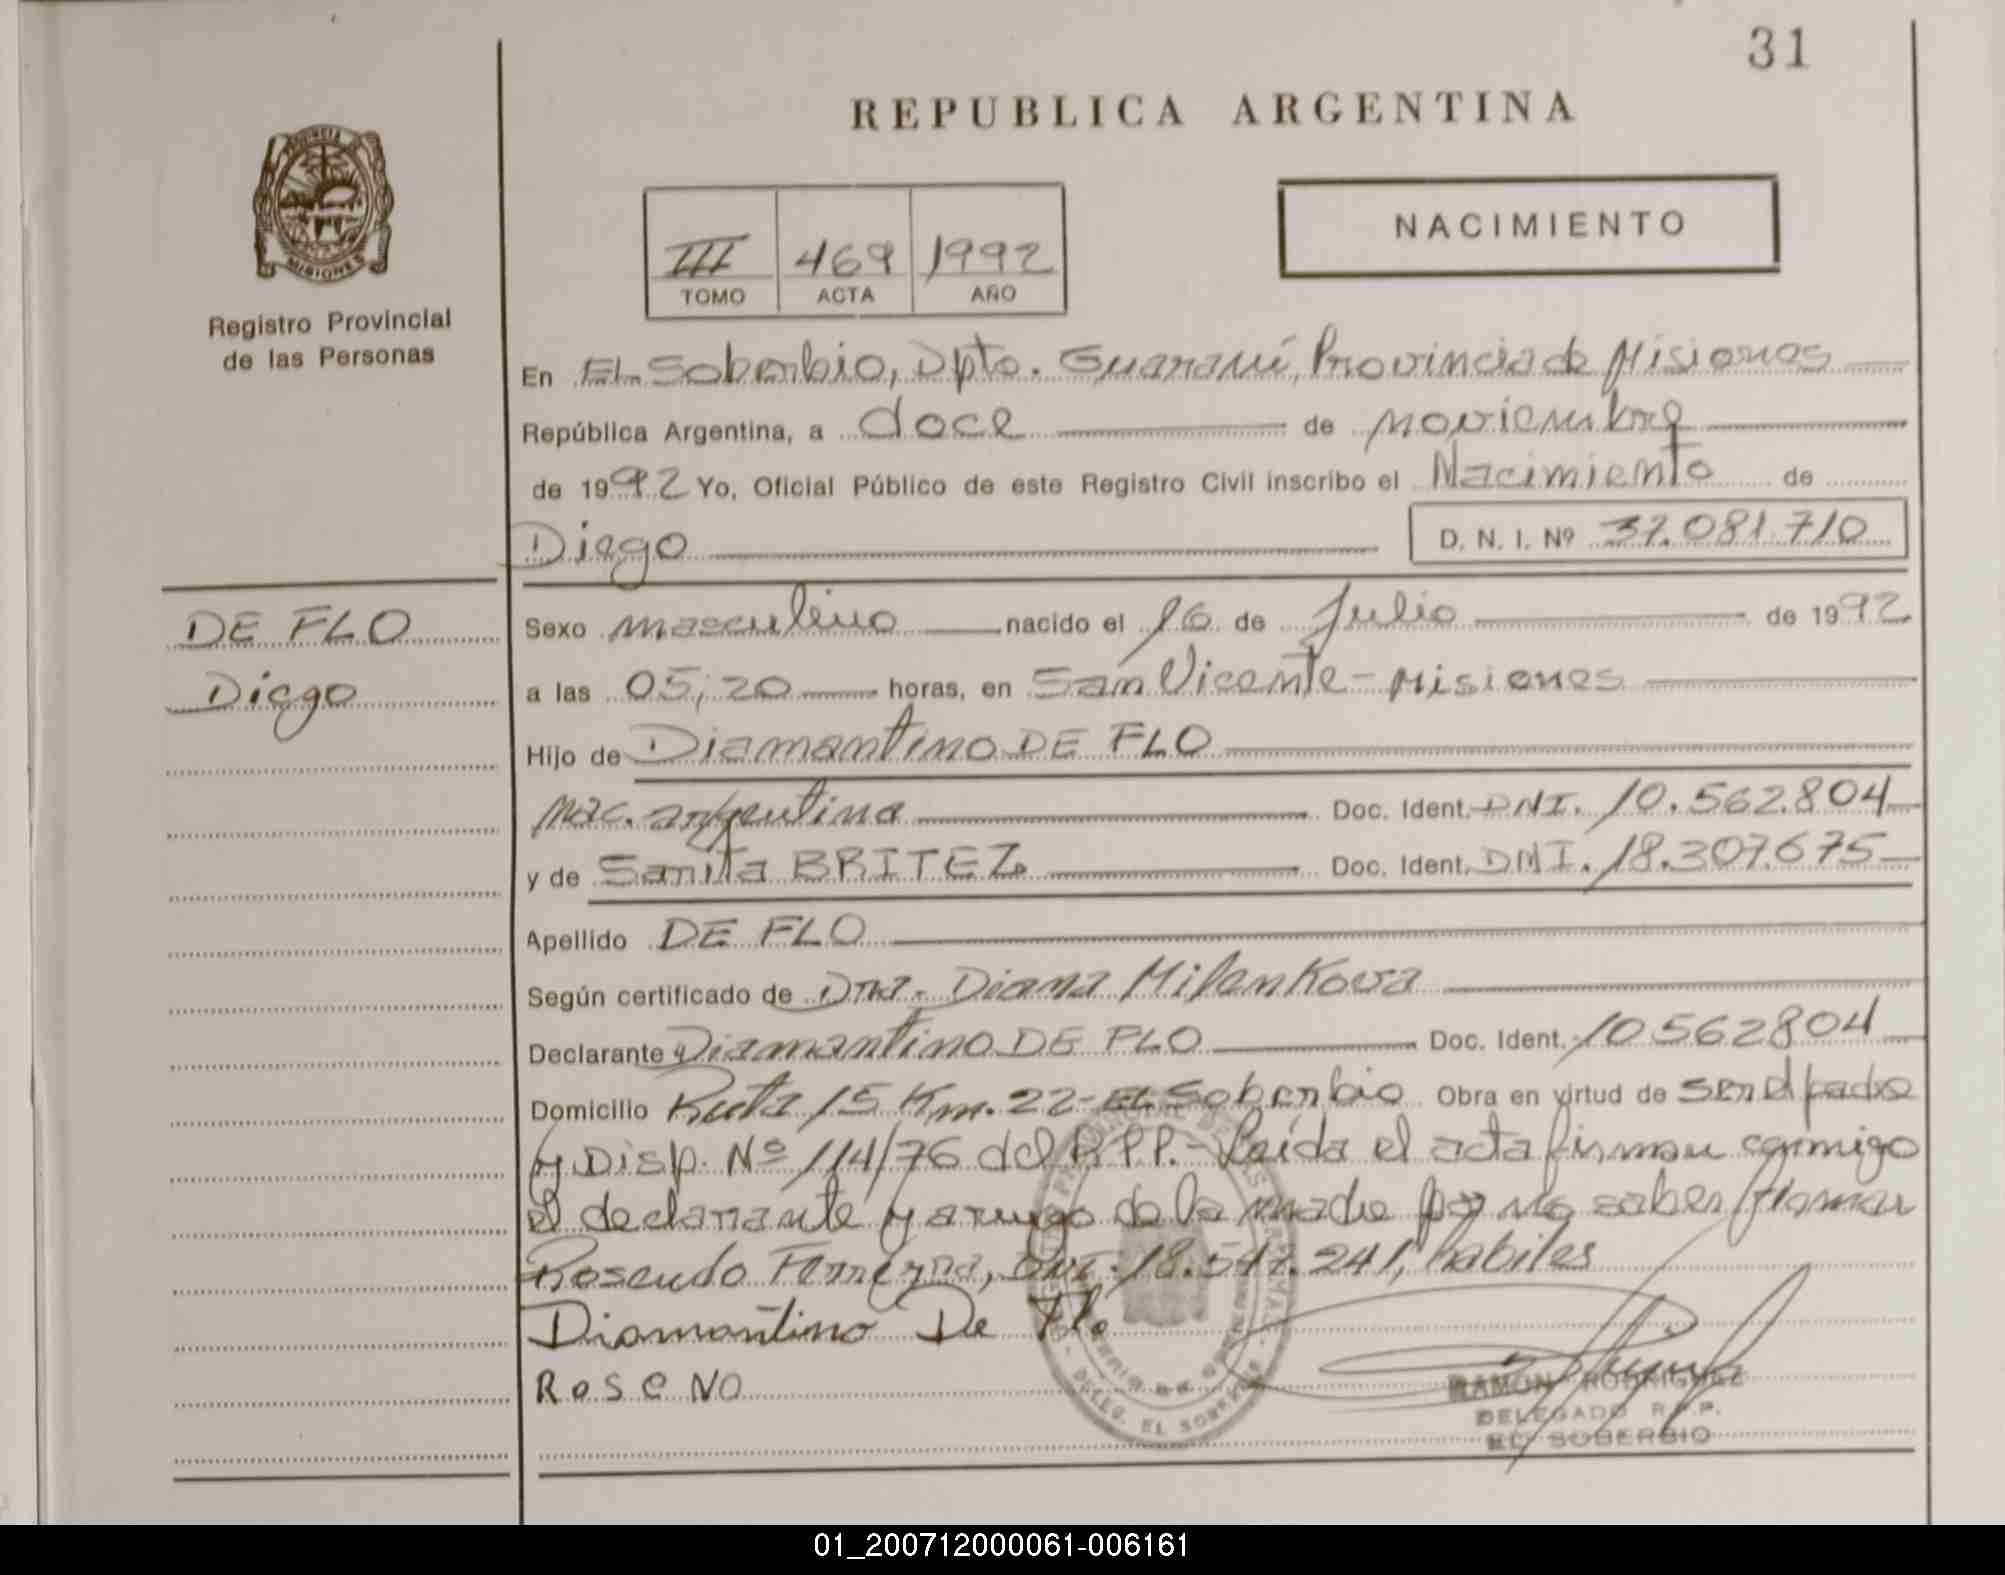 31
REPUBLICA ARGENTINA
PROVINCIA
MISIONES
Registro Provincial
de las Personas
III 469 1992
TOMO ACTA AÑO
NACIMIENTO
En El Soberbio, Dpto. Guaraní, Provincia de Misiones
República Argentina, a doce de noviembre
de 1992 Yo, Oficial Público de este Registro Civil inscribo el Nacimiento de
Diego D. N. I. Nº 37.081.710
DE FLO
Diego
Sexo masculino nacido el 16 de Julio de 1992
a las 05,20 horas, en San Vicente - Misiones
Hijo de Diamantino DE FLO
Nac. argentina Doc. Ident. DNI. 10.562.804
y de Sanita BRITEZ Doc. Ident. DNI. 18.307.675
Apellido DE FLO
Según certificado de Dra. Diana Milenkova
Declarante Diamantino DE FLO Doc. Ident. 10562804
Domicilio Ruta 15 Km. 22 - El Soberbio Obra en virtud de ser el padre
y Disp. Nº 114/76 del R.P.P. - Leída el acta firman conmigo
el declarante y a ruego de la madre por no saber firmar
Rosendo Ferreyra, DNI. 18.547.241, habiles
Diamantino De Flo
RoSeNO
DELEG. EL SOBERBIO
RAMON RODRIGUEZ
DELEGADO R.P.P.
EL SOBERBIO
01_200712000061-006161